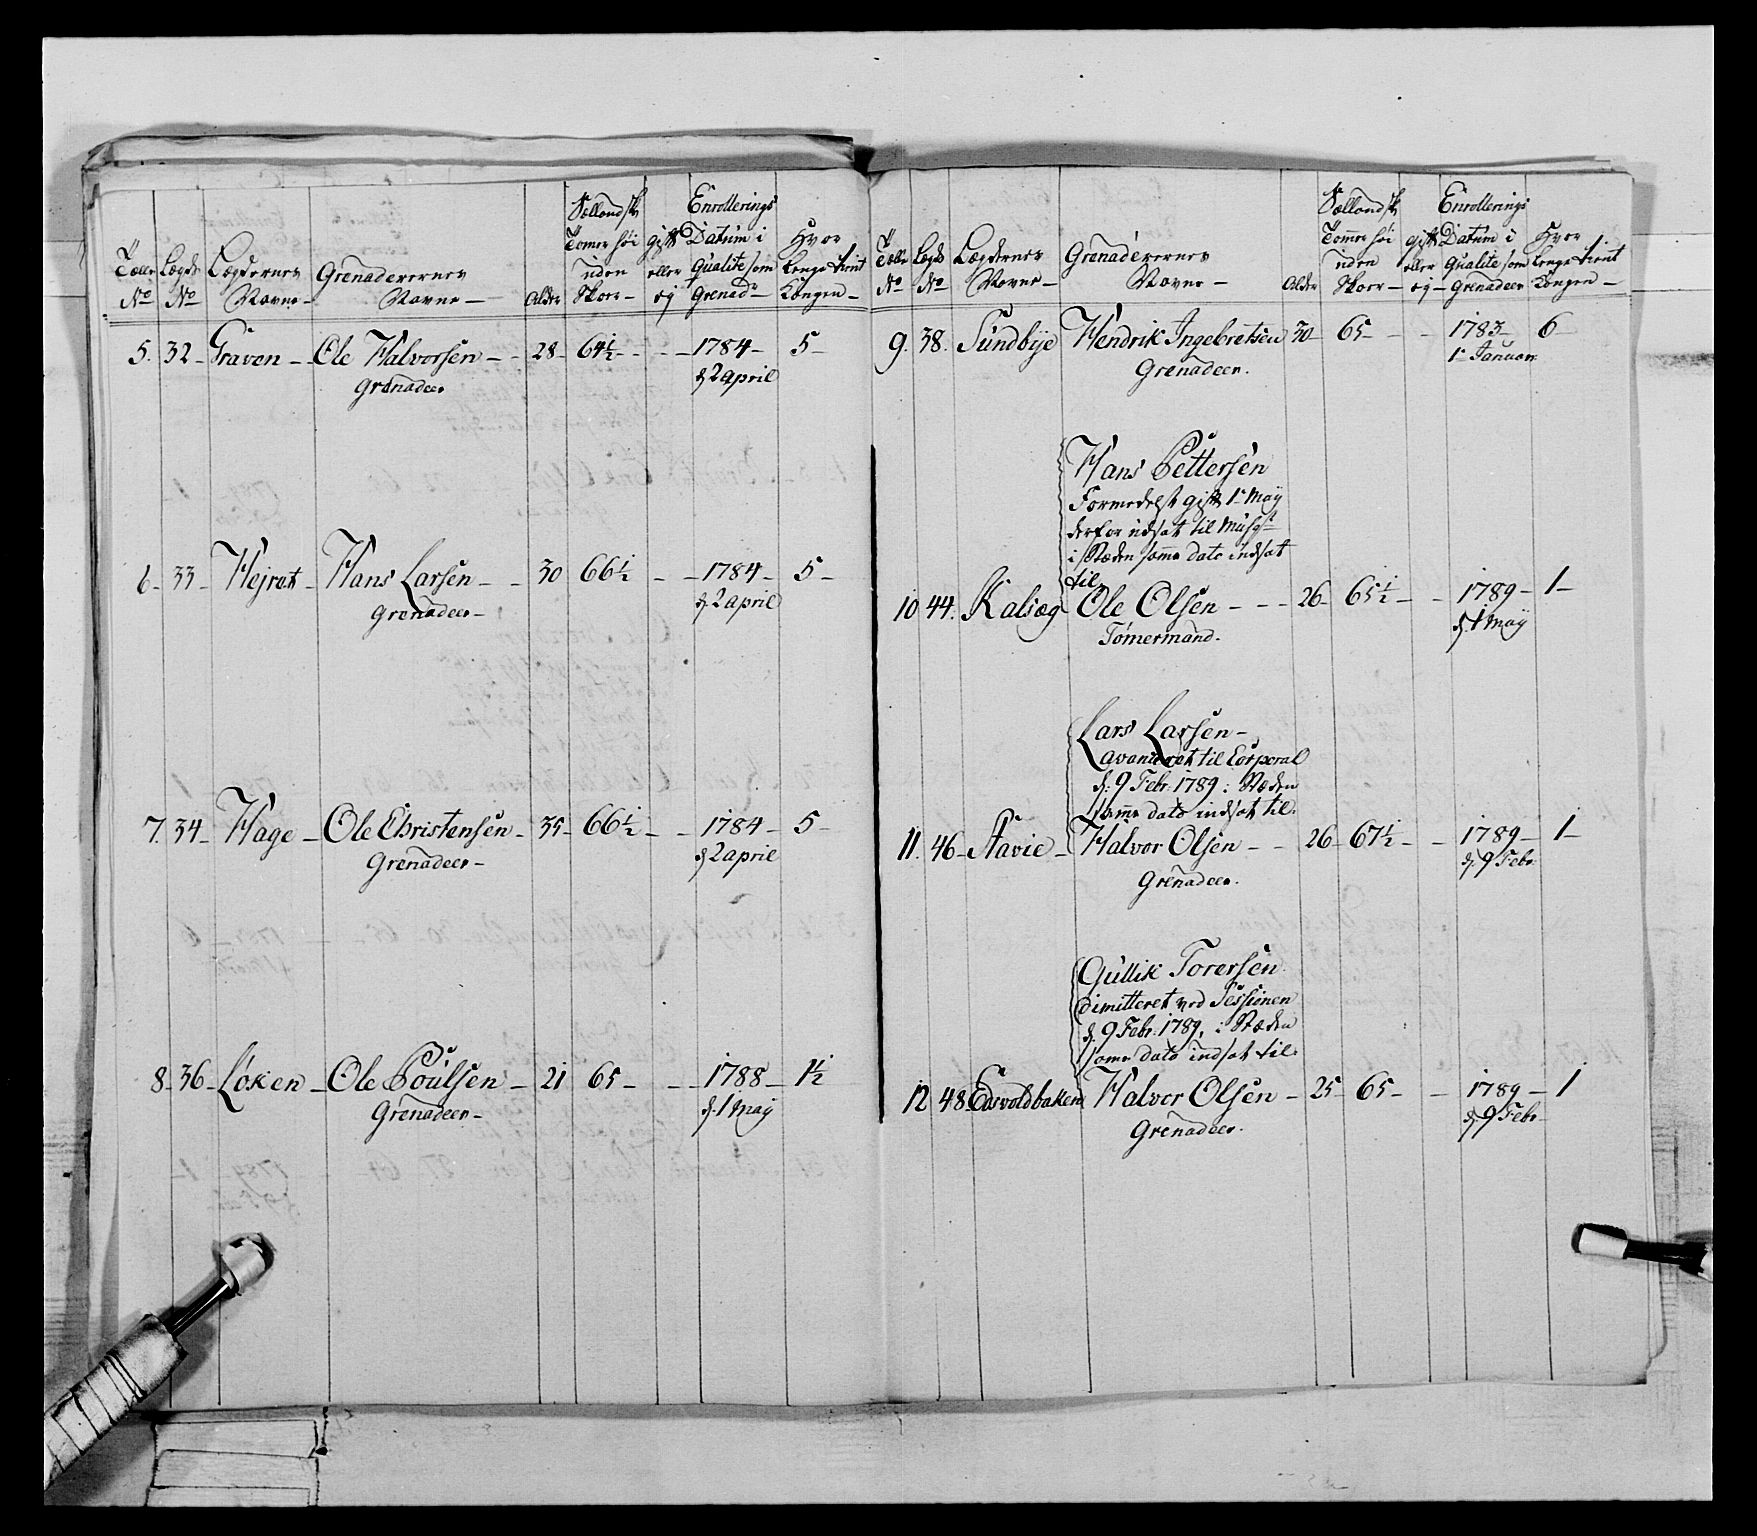 Tælle No
Lægds No
Lægdernes Navne
Grenaderernes Navne
Alder
Sællandsk Tomer høi uden Skoer
gift eller ej
Enrollerings Datum i Qualite som Grenad
Hvor længe tient Kongen
5. 32 Graven Ole Halvorsen 28 64½ 1784 5
Grenadeer d 2 april
6 33 Hejret Hans Larsen 30 66½ 1784 5
Grenadeer d 2 april
7. 34 Hage Ole Christensen 35 66½ 1784 5
Grenadeer d 2 april
8 36 Løken Ole Poulsen 21 65 1788 1½
Grenadeer d. 1 May
Tælle No
Lægd No
Lægdernes Navne
Grenaderernes Navne
Alder
Sællandsk Tommer høi uden Skoer
gift eller ej
Enrollerings Datum i Qualite som Grenadeer
Hvor længe tient Kongen
9. 38. Sundbye Hendrik Ingebretsen 30 65 1783 6
Grenadeer. 1 Januar
Hans Pettersen
Formedelst gift 1 May
derfor udsat til Musqt
i Stæden samme dato indsat
til
10 44. Kalsæg Ole Olsen 26 65½ 1789 1
Tømermand. d. 1 May
Lars Larsen
avanceret til Corporal
d. 9 Febr. 1789: Stæden
samme dato indsat til.
11. 46 Stavie Halvor Olsen 26 67½ 1789 1
Grenadeer. d. 9 Febr
Gullik Torersen
dimitteret ved Sessionen
d. 9 Febr. 1789, i Stæden
samme dato indsat til.
12 48 Edsvoldbaken Halvor Olsen 25 65 1789 1
Grenadeer. d. 9 Febr